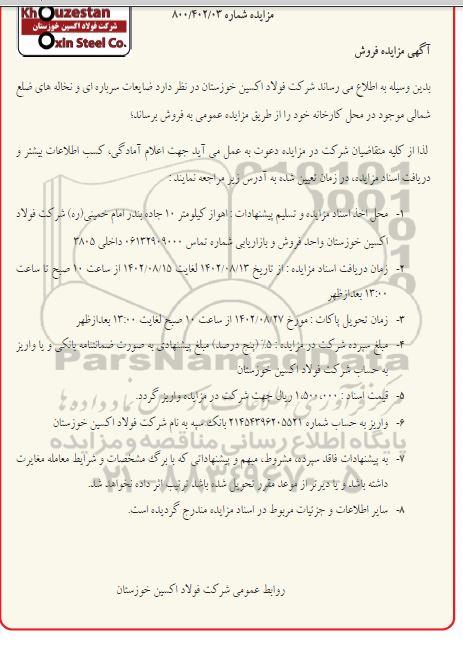 مزایده شماره ۸۰۰/۴۰۲/۰۳
Khouzestan
شرکت فولاد اکسین خوزستان
Oxin Steel Co.
آگهی مزایده فروش
بدین وسیله به اطلاع می رساند شرکت فولاد اکسین خوزستان در نظر دارد ضایعات سرباره ای و نخاله های ضلع
شمالی موجود در محل کارخانه خود را از طریق مزایده عمومی به فروش برساند؛
لذا از کلیه متقاضیان شرکت در مزایده دعوت به عمل می آید جهت اعلام آمادگی، کسب اطلاعات بیشتر و
دریافت اسناد مزایده، در زمان تعیین شده به آدرس زیر مراجعه نمایند :
۱- محل اخذ اسناد مزایده و تسلیم پیشنهادات : اهواز کیلومتر ۱۰ جاده بندر امام خمینی(ره) شرکت فولاد
اکسین خوزستان واحد فروش و بازاریابی شماره تماس ۰۶۱۳۲۹۰۹۰۰۰ داخلی ۳۸۰۵
۲- زمان دریافت اسناد مزایده : از تاریخ ۱۴۰۲/۰۸/۱۳ لغایت ۱۴۰۲/۰۸/۱۵ از ساعت ۱۰ صبح تا ساعت
۱۳:۰۰ بعدازظهر
۳- زمان تحویل پاکات : مورخ ۱۴۰۲/۰۸/۲۷ از ساعت ۱۰ صبح لغایت ۱۳:۰۰ بعدازظهر
۴- مبلغ سپرده شرکت در مزایده : ۵٪ (پنج درصد) مبلغ پیشنهادی به صورت ضمانتنامه بانکی و یا واریز
به حساب شرکت فولاد اکسین خوزستان
۵- قیمت اسناد : ۱،۵۰۰،۰۰۰ ریال جهت شرکت در مزایده واریز گردد.
۶- واریز به حساب شماره ۲۱۴۵۴۳۹۶۲۰۵۵۲۱ بانک سپه به نام شرکت فولاد اکسین خوزستان
۷- به پیشنهادات فاقد سپرده، مشروط، مبهم و پیشنهاداتی که با برگ مشخصات و شرایط معامله مغایرت
داشته باشد و یا دیرتر از موعد مقرر تحویل شده باشد ترتیب اثر داده نخواهد شد.
۸- سایر اطلاعات و جزئیات مربوط در اسناد مزایده مندرج گردیده است.
روابط عمومی شرکت فولاد اکسین خوزستان
ParsNamadData
پایگاه اطلاع رسانی مناقصه و مزایده